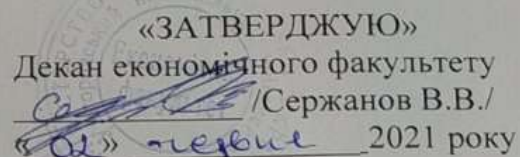 «ЗАТВЕРДЖУЮ»
Декан економічного факультету
/Сержанов В.В./
«02» червня 2021 року